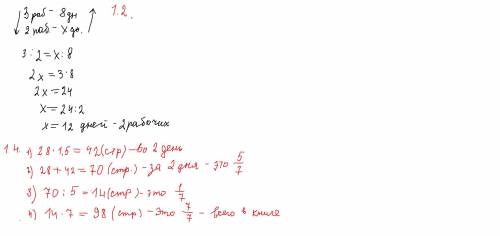 3 раб - 8 дн
1.2.
2 раб - x дн.
3 : 2 = x : 8
2x = 3·8
2x = 24
x = 24:2
x = 12 дней - 2 рабочих
1.4. 1) 28·1,5 = 42 (стр) - во 2 день
2) 28 + 42 = 70 (стр.) - за 2 дня - это 5/7
3) 70 : 5 = 14 (стр) - это 1/7
4) 14·7 = 98 (стр) - это 7/7 - всего в книге